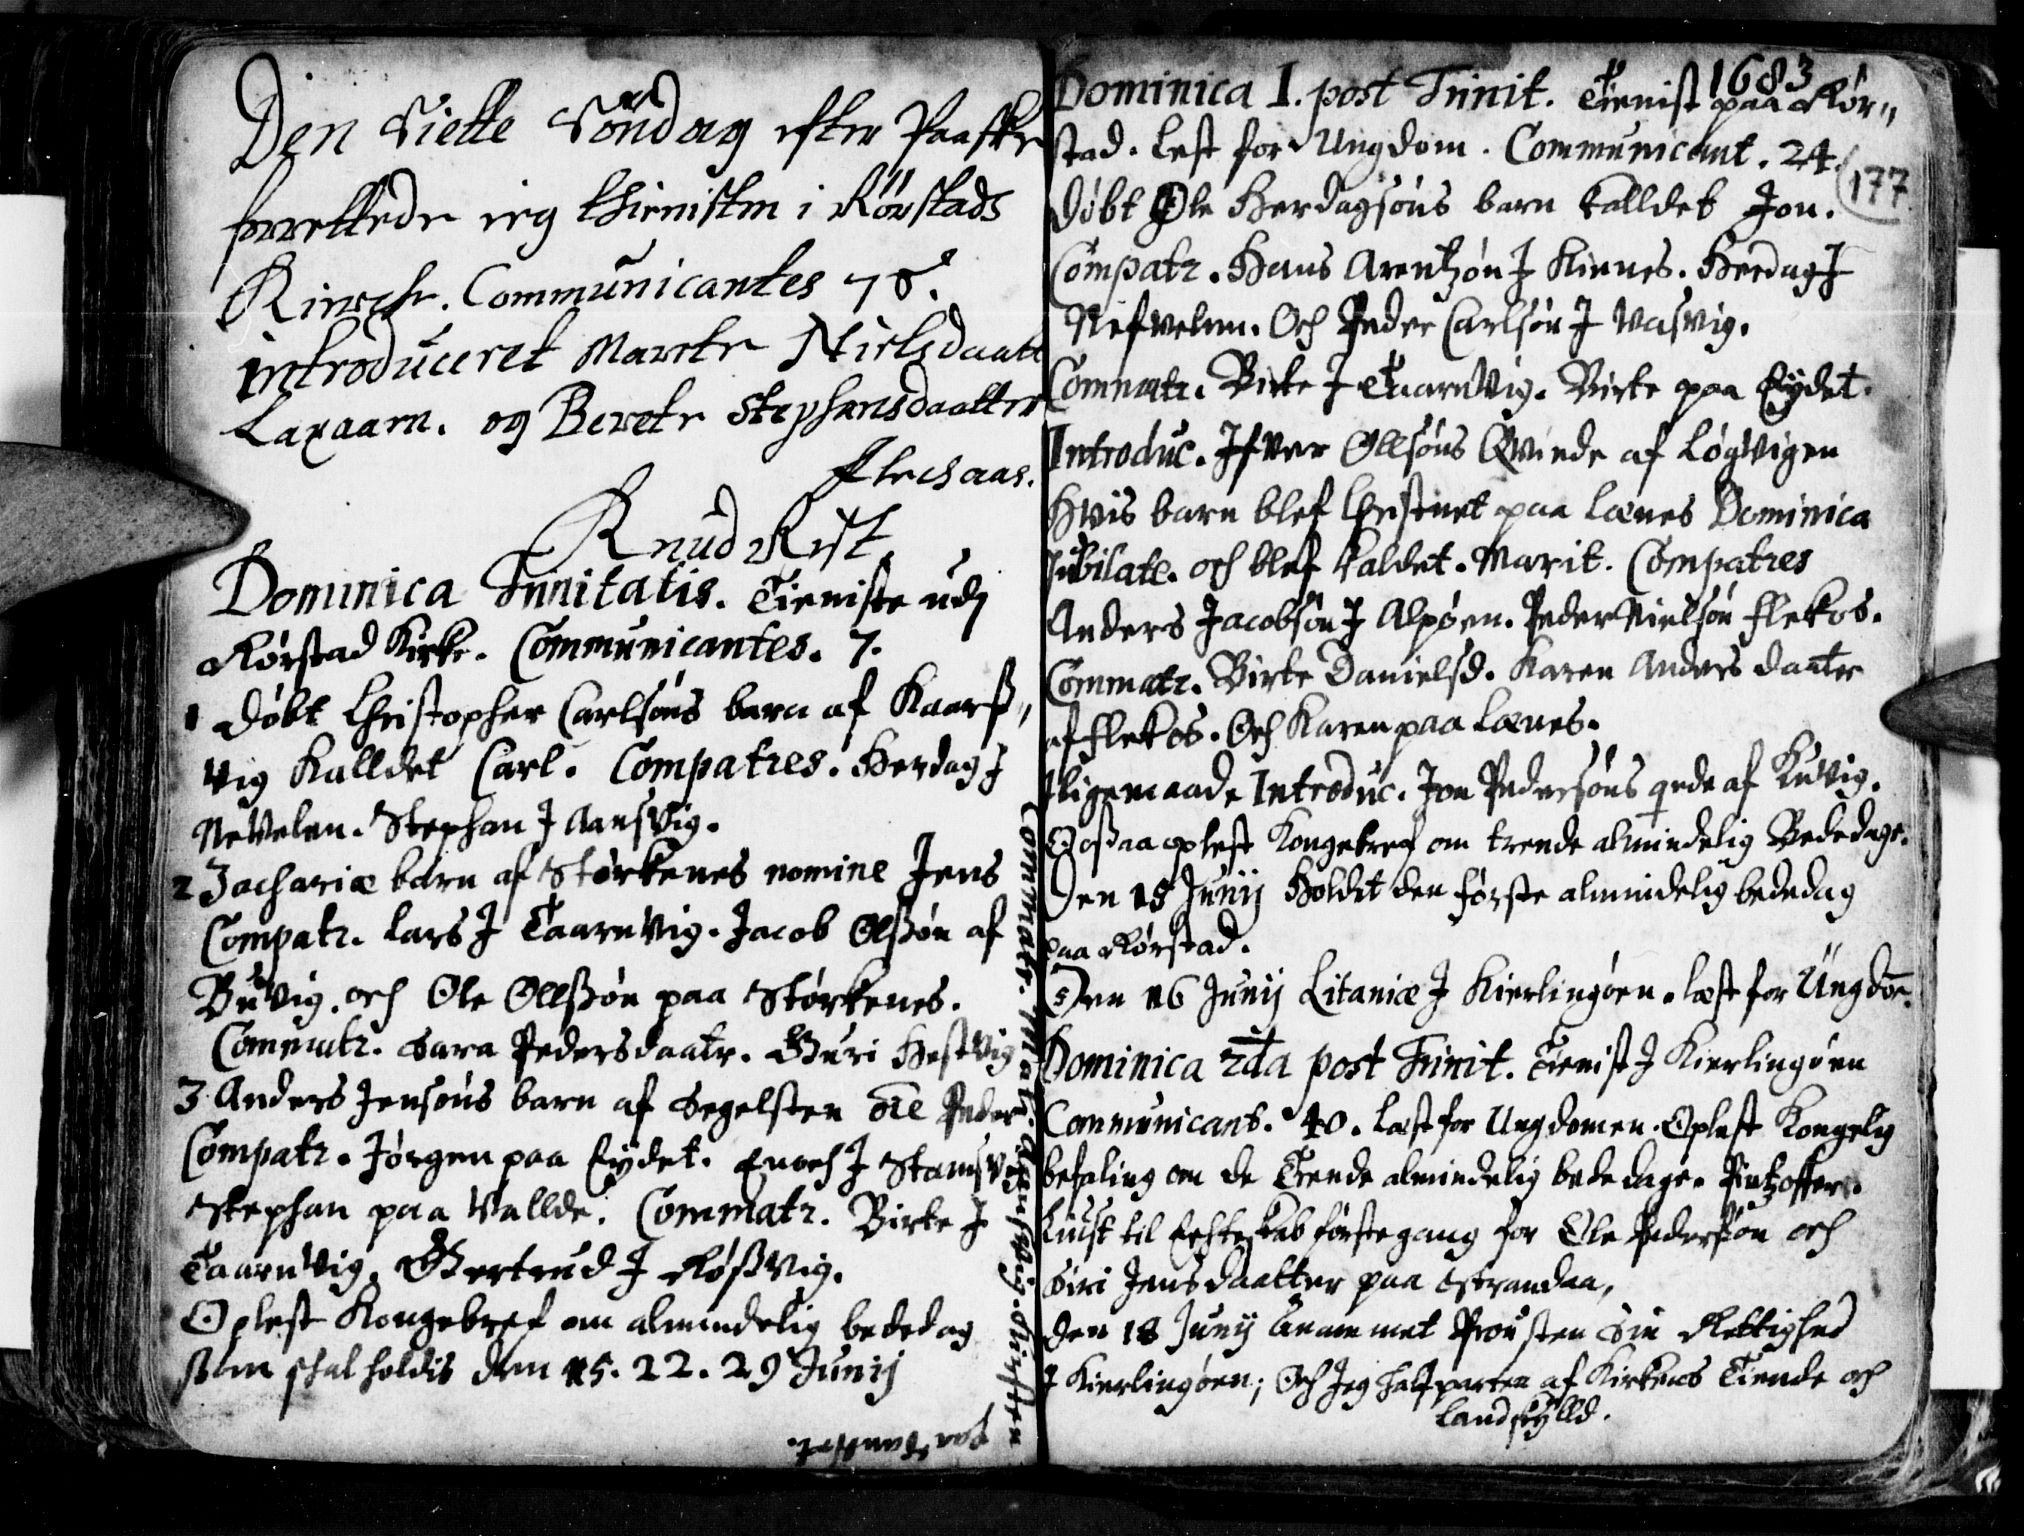 Den Siette Söndag efter Paaske
forrettede ieg thienisten i Rörstads
Kirche. Communicantes 78.
introduceret Marete Nielsdaatt
Laxaarn. og Berete Stephansdaatter
Flechaas.
Knud Rist.
Dominica Trinitatis. Tieniste udj
Rørstad Kirke. Communicantes. 7.
1 Døbt Christopher Carlsøns barn af Kaarß,,
vig Kalldet Carl. Compatres. Herdag J
Nevelen. Stephan J Aansvig.
2 Zachariæ barn af Størkenes nomine Jens
Compatr. Lars J Taarnvig. Jacob Olßøn af
Buvig. och Ole Ollßøn paa Størkenes.
Commatr. Sara Pedersdaatr. Guri Hestvig
3 Anders Jensøns barn af Segelsten Peder
Compatr. Jørgen paa Eydet. Enoch J Stamsv
Stephan paa Vallde. Commatr. Birte J
Taarnvig. Giertrud J Røßvig.
Oplest Kongebref om almindelig bededag
som skal holdis den 15. 22. 29 Junij
Commatr.
1683
177
Dominica I. post Trinit. Tienist paa Rør,,
stad. lest for Ungdom. Communicant. 24.
Døbt Ole Herdagsøns barn kalldet Jon.
Compatr. Hans Arentzøn J Kinnes. Herdag J
Nefvelen. Och Peder Carlsøn J Vasvig.
Commatr. Birte J Taarnvig. Birte paa Eydet.
Introduc. Ifver Ollsøns Qvinde af Løgvigen
Hvis barn blef Christnet paa Lænes Dominica
Jubilate. och blef kaldet. Marit. Compatres
Anders Jacobsøn J Alpøen. Peder Nielsøn Flekos.
Commatr. Birte Danielsd. Karen Anders daater
af Flekos. Och Karen paa Lænes.
Iligemaade Introduc. Jon Pedersøns qvde af Kuvig.
Ocsaa oplest Kongebref om trende almindelig Bededage.
Den 15 Junij Holdet den første almindelig bededag
paa Rørstad.
Den 16 Junij Litaniæ J Kierlingøen. læst for Ungdom.
Dominica 2da post Trinit. Tienist J Kierlingøen
Communicant. 40. læst for Ungdomen. Oplest Kongelig
befaling om de Trende almindelig bededage. Pintzoffer.
Liust til Echteskab første gang for Ole Pederßøn och
Siri Jensdaatter paa Strandaa,
Den 18 Junij Anammet Prousten Sin Rettighed
J Kierlingøen; Och Jeg halfparten af Kirkens Tiende och
Landskylld.